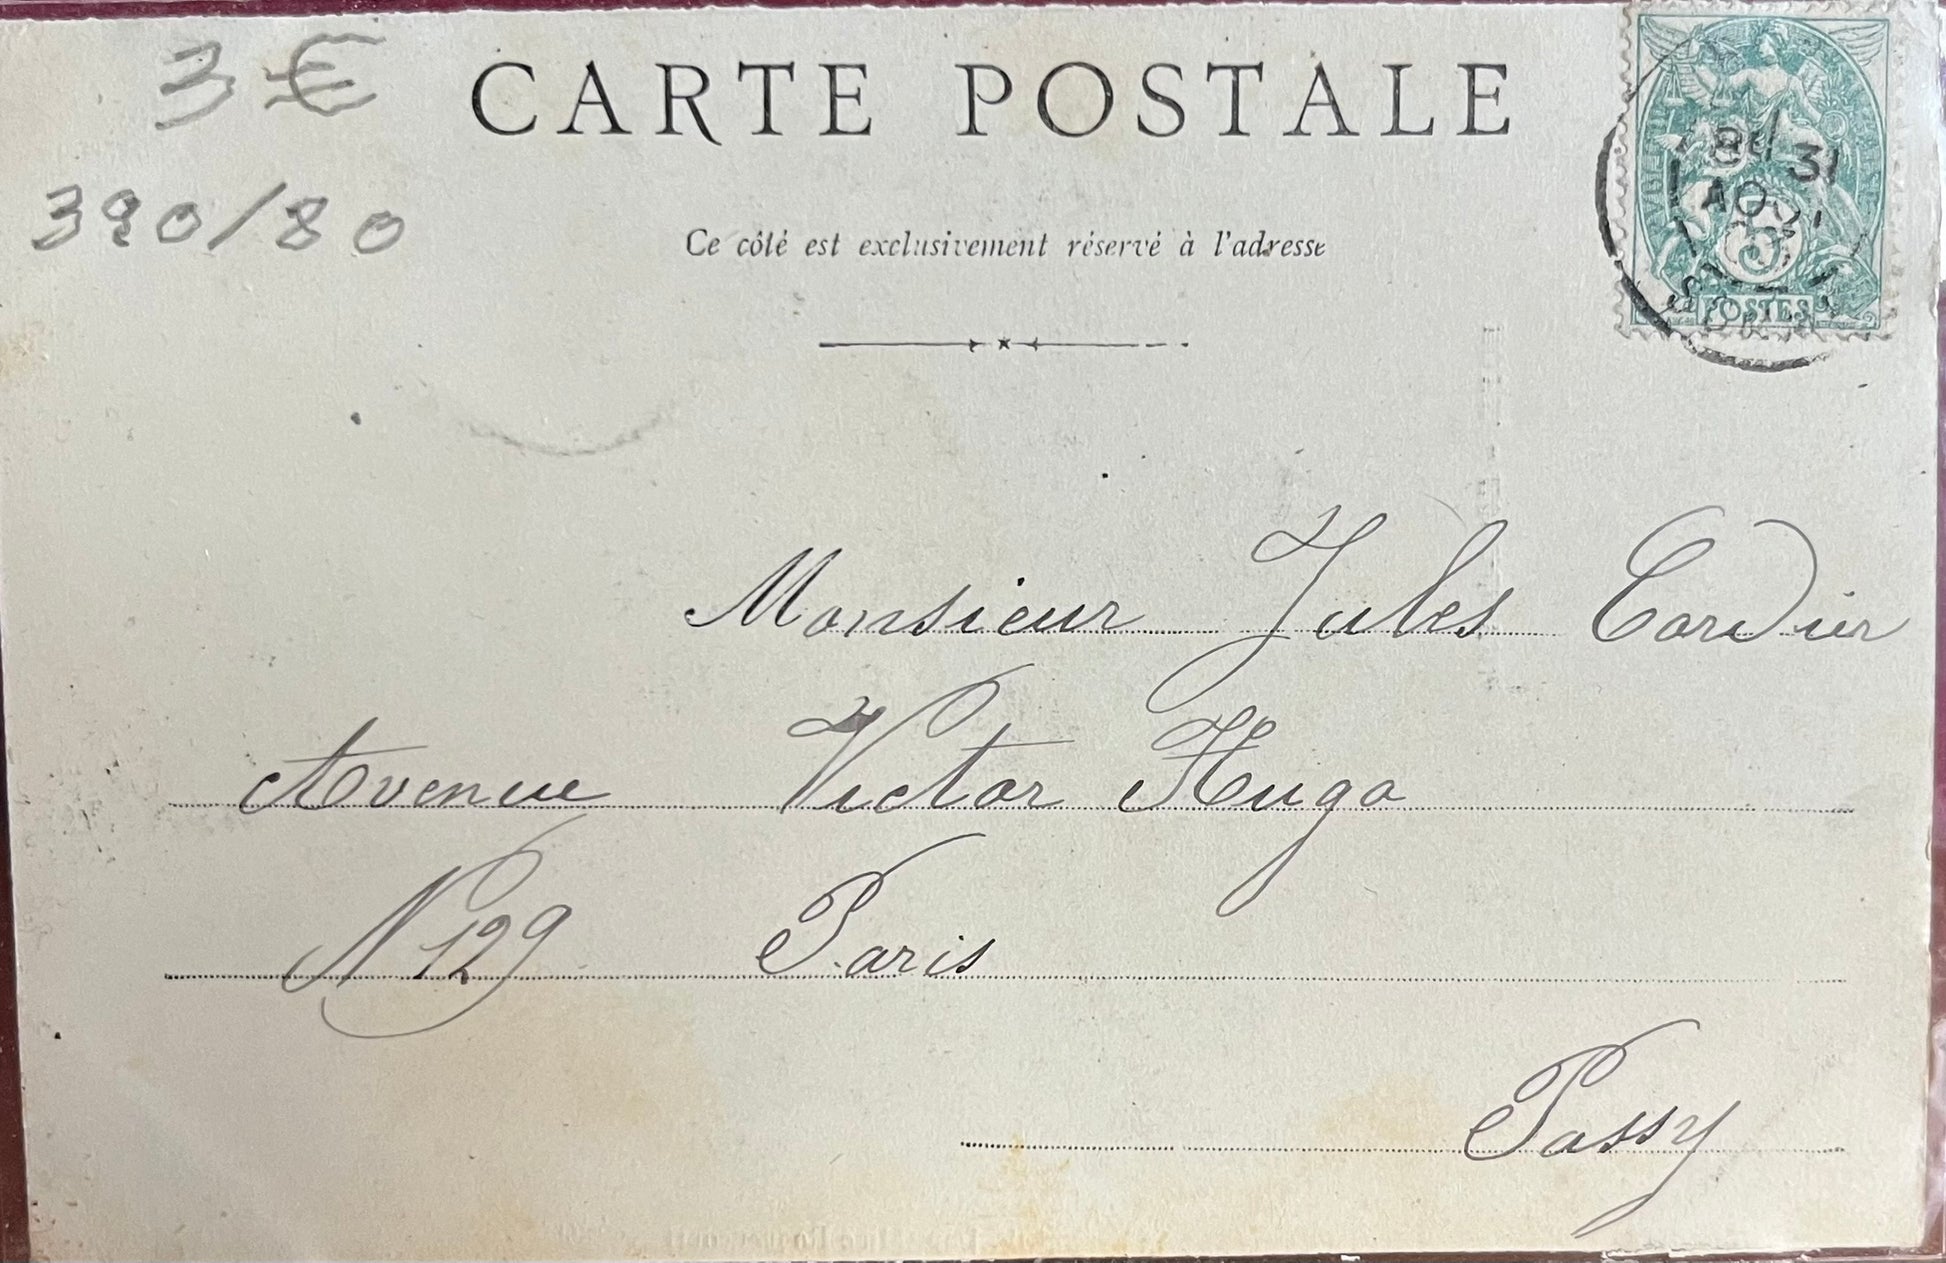 3 €
CARTE POSTALE
390/80
Ce côté est exclusivement réservé à l'adresse
8H 31
AOUT
5
POSTES
Monsieur Jules Cordier
Avenue Victor Hugo
N 129 Paris
Passy